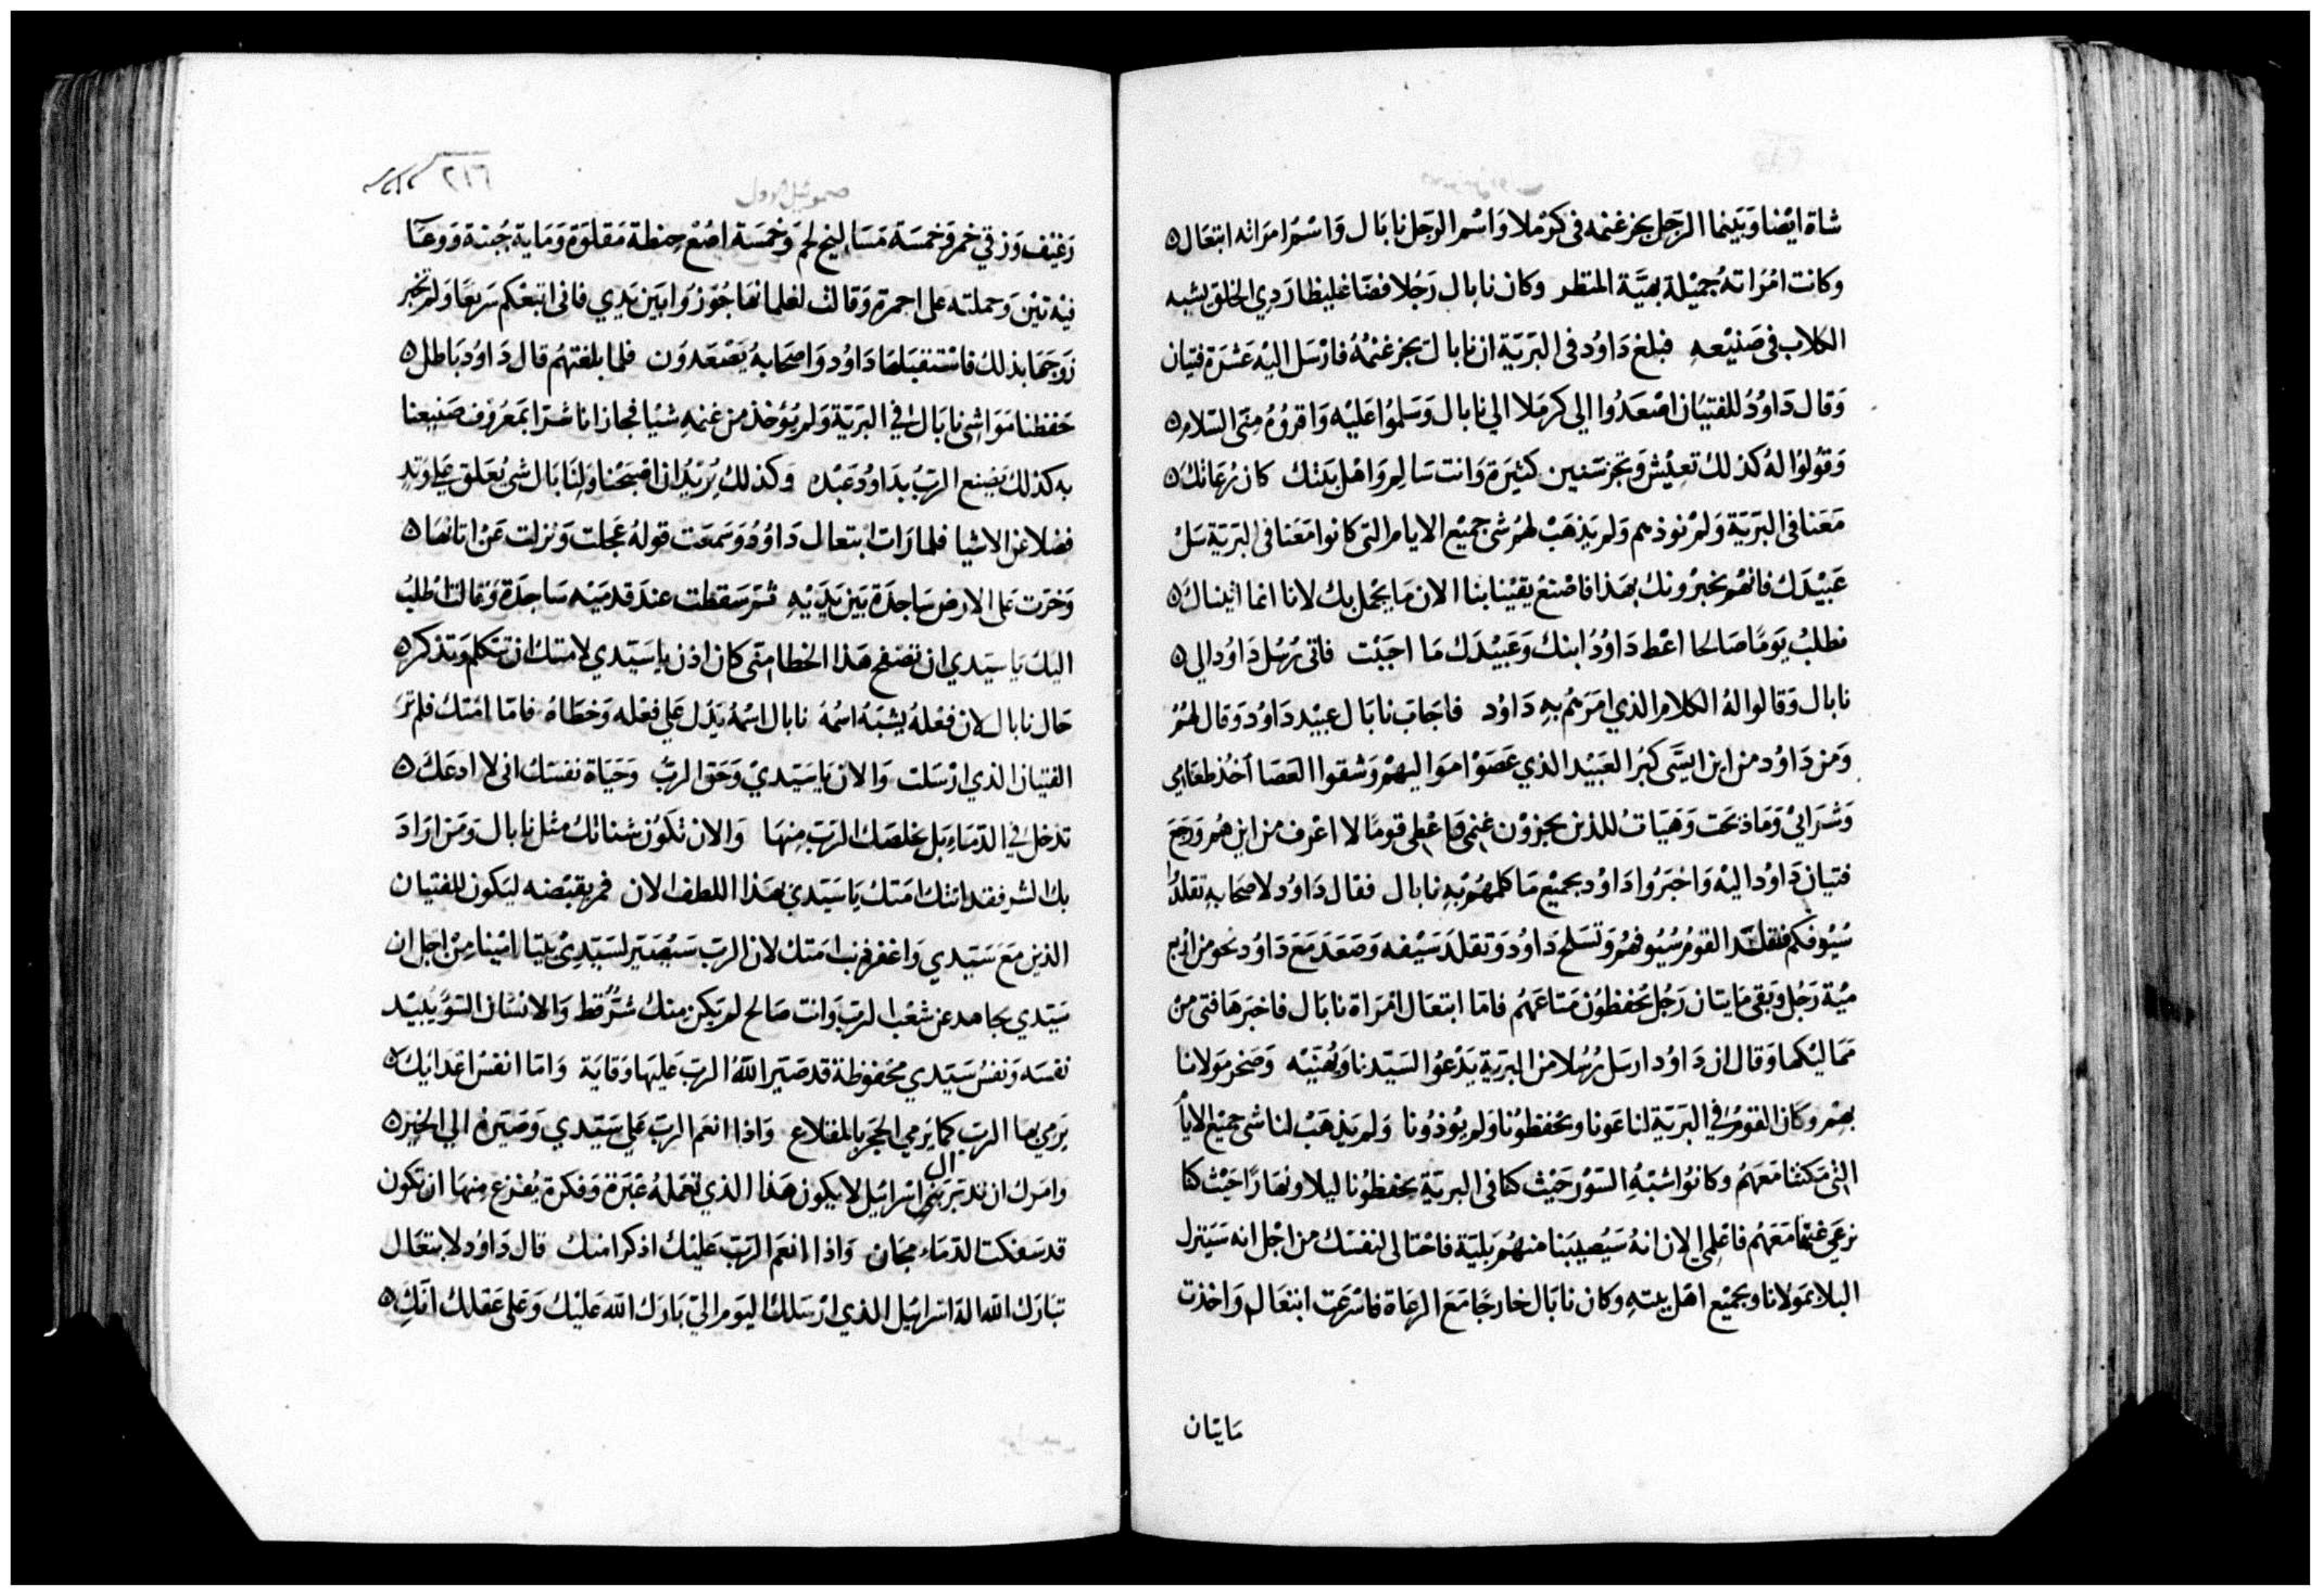 شاة ايْضا وَبَينما الرّجل يجز غنمه فى كرْملا وَاسْم الرجل نابَال وَاسْمُ امرَاته ابتعَال ٥
وكانت امْرَاتهُ جميْلة بهيَّة المنظر وكان نابال رَجُلا فضّا غليظا رَدِي الخلق يشبه
الكلاب فى صَنيْعهِ فبلغ دَاوُد فى البَريّة ان نابال يجز غنمُهُ فارْسَل اليْه عَشرَة فتيان
وَقال دَاوُدُ للفتيْان اصْعَدُوا الي كرمَلا الي نابال وَسَلموُا عليْه وَاقروُهُ منى السّلام ٥
وَقوُلوُا لهُ كذلك تعيْش وَتجز سَنين كثيرَة وَانت سَالم وَاهْل بيَتك كان رُعَاتك ٥
مَعَنا فى البرَية وَلمْ نوذهم وَلم يَذهَبْ لهمْ شى جميْع الايام التى كانوا مَعَنا فى البَرية سَلْ
عَبيْدَك فانهْم يخبرْونك بهَذا فاصْنعْ يقيْنا بنا الان مَا يجْمل بك لانا انما اتيناك ٥
نطلبُ يَومًا صَالحا اعْط دَاوُدُ ابنك وَعَبيْدَك مَا اجَبْت فاتى رُسُل دَاوُد الي ٥
نابال وَقالوا لهُ الكلام الذي امَرَهُم بهِ دَاوُد فاجَابَ نابَال عبيْد دَاوُد وَقال لهُمْ
وَمن دَاوُد من ابن ايسَّى كبرَ العَبيْد الذي عَصَوْا مَوَاليهمْ وَشقوا العَصَا اخذ طعَامي
وَشرَابيْ وَمَا ذبحَت وَهيَات للذين يجزوْن غنمى وَاعْطى قومًا لا اعْرف من اين هُم وَرَجَعَ
فتيان دَاوُد اليْه وَاخبَرُوا دَاوُد بجميْع مَا كلمهُمْ بهِ نابال فقال دَاوُد لاصحَابهِ تقلدُوا
سُيوُفكم فتقلدَ القومُ سُيُوفهُم وَتسَلح دَاوُد وَتقلدَ سَيْفه وَصَعَدَ مَعَ دَاوُد نحو من اربع
ميْة رَجُل وَبقى مَايتان رَجُل يحَفظوُن مَتاعَهُم فامَّا ابتعَال امرَاة نابَال فاخبَرهَا فتى منْ
ممَاليْكها وَقال ان دَاوُد ارسَل رُسُلا من البرَية يَدْعُوا لسَيّدنا وَيُهَنيْه وَضجر مَولانا
بهمْ وكان القومُ في البَريّة لنا عَونا وَيحفظوُنا وَلم يؤذوُنا وَلم يَذهَبْ لنا شى جميْع الايام
التى مَكثنا مَعَهُم وكانوُا شبْهَ السّوُر حَيْث كنا فى البريّة يحَفظوُنا ليلا وَنهَارًا حَيْث كنا
نرْعَى غنمَا مَعَهُم فاعْلمي الان انهُ سَيُصيبَنا منهُم بَليّة فاحْتالى لنفسَك من اجْل انه سَيَنزل
البلا بمَولانا وبجميْع اهْل بيتهِ وكان نابَال خارجًا مَعَ الرعَاة فاسْرعَت ابتعَال وَاخذت
مَايتان
٢١٦
صموئيل الاول
رَغيْف وَزقي خمر وَخمسَة مَسَاليخ لحم وَخمسَة اصُعْ حِنطة مَقلوَة وَمَاية جُبنة وَوعَآ
فيْه تيْن وَحملته على احمرة وَقالت لغلمانهَا جُوزوَا بَين يَدي فانى اتبعْكم سَريعًا وَلم تخبر
زوَجهَا بذلك فاسْتقبَلهَا دَاوُد وَاصحَابهُ يَصْعَدوُن فلما بلغتهُم قال دَاوُد بَاطل ٥
حَفظنا مَوَاشى نابَال في البَريّة وَلم يُؤخذ من غنمهِ شيْا فجازانا شرًا بمَعرُوف صَنيعنا
به كذلك يَصْنع الربُّ بدَاوُد عَبْده وَكذلك يُريْدُ ان اصْبَحْنا وَلنابَال شي يُعَلق عَلي وَتدٍ
فضلا عَن الاشيا فلما رَات ابتعال دَاوُد وَسَمعَت قولهُ عجلت وَنزلت عَن اتانهَا ٥
وَخرّت عَلى الارض سَاجدَة بَين يَدَيْهِ ثم سَقطت عندَ قدمَيْه سَاجدَة وَقالت اطلبُ
اليك يَا سَيّدي ان تصْفح هَذا الخطا متى كان اذن يا سَيّدي لامتك ان تتكلم وَتذكر ٥
حَال نابال لان فعْلهُ يشبَهُ اسْمُهُ نابال اسْمُهُ يَدُل عَلي فعْله وَخطاهُ فامّا امَتك فلم ترَ
الفتيان الذي ارْسَلت وَالانْ يا سَيّديْ وَحَق الربّ وَحَيَاة نفسَك انى لا ادعَك ٥
تدخل في الدّمَاء بَل يخلصَك الرَبّ منهَا وَالان تكوُن شناتك مثل نابال وَمَن ارَادَ
بك الشر فقد اتتك امَتك يَا سَيّدي بهَذا اللطف الان فمر بقبْضه ليَكون للفتيان
الذين مَعَ سَيّدي وَاغفر ذنب امَتك لان الربّ سَيُصَيّر لسَيّديْ بَيتا امْينا منْ اجل ان
سَيّدي يجاهد عَن شعْب الربّ وَانت صَالح لم يَكن منك شرّ قط وَالانسْان السّوُ يُبيْد
نفسَه وَنفسُ سَيّدي مَحفوظة قد صَيّر اللهُ الربّ عَليهَا وَقايَة وَامّا انفسُ اعْدَايك ٥
يَرمي بهَا الربّ كمَا يَرمي الحَجرَ بالمقلاع وَاذا انعَم الربّ عَلي سَيّدي وَصَيّرهُ الي الخير ٥
وامَرك ان تدَبّر بَنى ال اسْرائيَل لا يكون هَذا الذي تعَملهُ عَبرَة وَفكرَة يُفزع منهَا ان تكون
قد سَفكت الدّمَاء مجَان وَاذا انعَم الرَبّ عَليْك اذكر امَتك قال دَاوُد لابتعَال
تبَارَك الله اله اسْرائيَل الذي ارْسَلك اليَوم اليّ بَارَك الله عَليْك وَعَلى عَقلك انكِ ٥